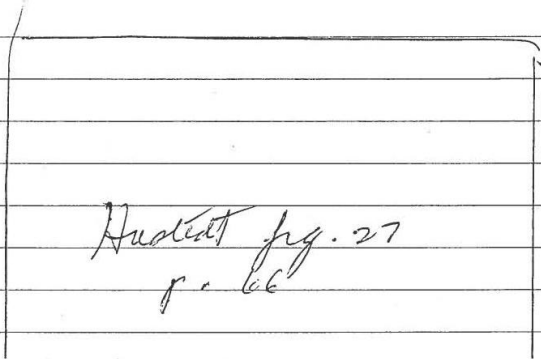 Hustedt fig. 27
p. 66